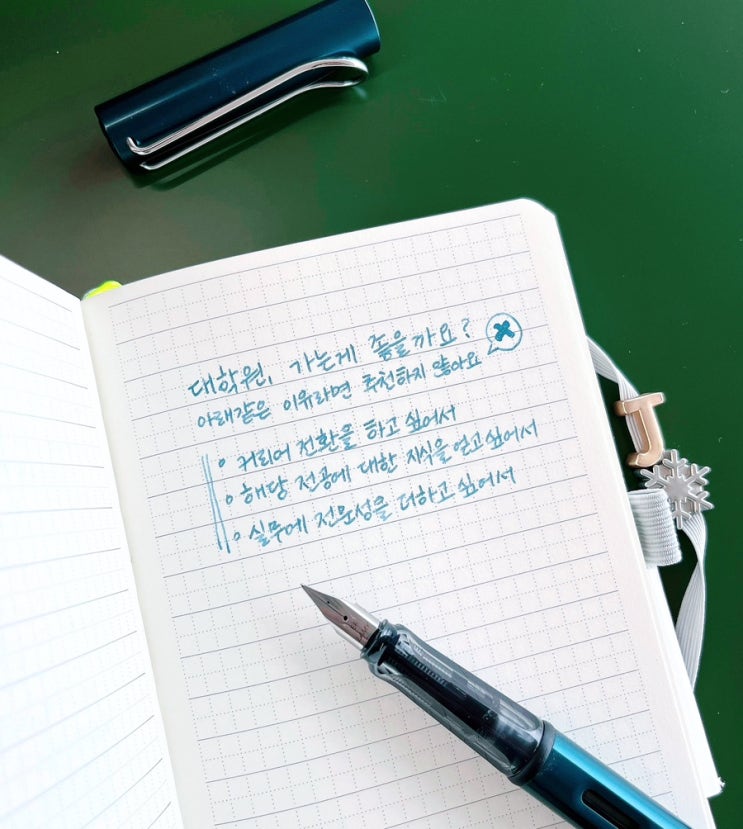 대학원, 가는게 좋을까요?
아래같은 이유라면 추천하지 않아요
커리어 전환을 하고 싶어서
해당 전공에 대한 지식을 얻고싶어서
실무에 전문성을 더하고 싶어서
J